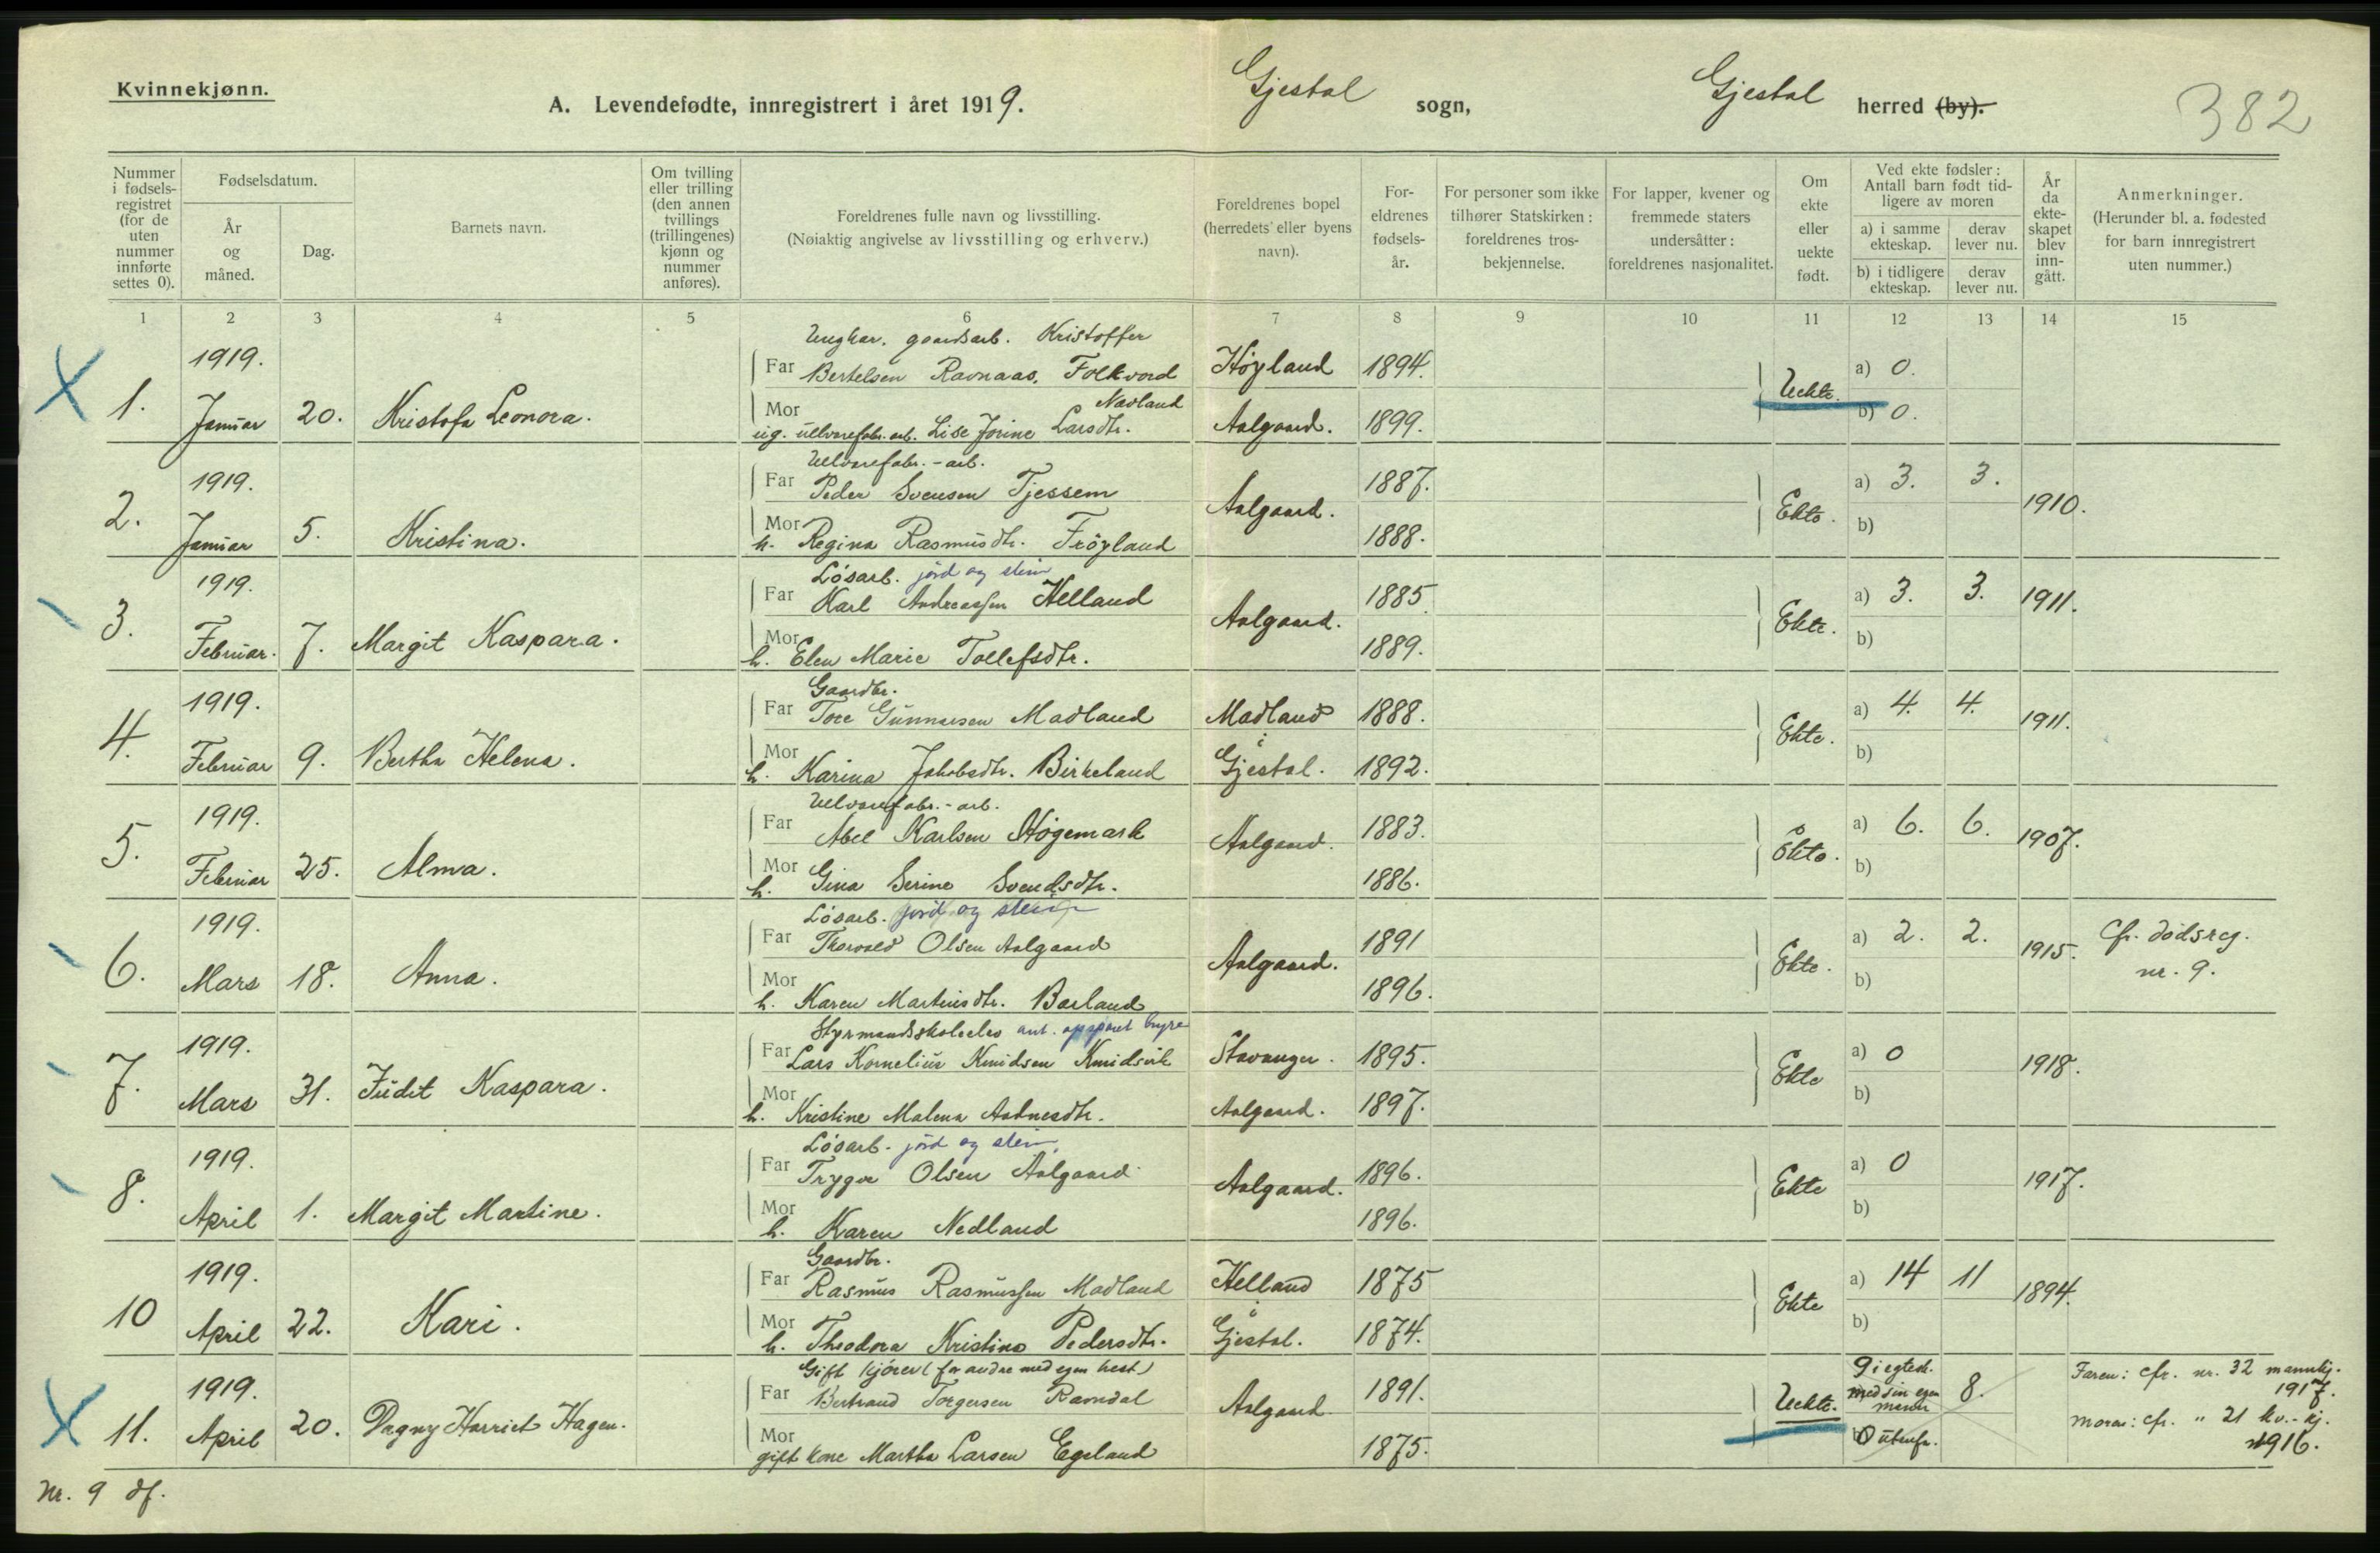 Kvinnekjønn.
A. Levendefødte, innregistrert i året 1919.
Gjestal sogn,
Gjestal herred (by).
382
Nummer i fødsels-registret (for de uten nummer innførte settes 0).
Fødselsdatum.
År og måned.
Dag.
Barnets navn.
Om tvilling eller trilling (den annen tvillings (trillingenes) kjønn og nummer anføres).
Foreldrenes fulle navn og livsstilling.
(Nøiaktig angivelse av livsstilling og erhverv.)
Foreldrenes bopel (herredets eller byens navn).
For-eldrenes fødsels-år.
For personer som ikke tilhører Statskirken: foreldrenes tros-bekjennelse.
For lapper, kvener og fremmede staters undersåtter: foreldrenes nasjonalitet.
Om ekte eller uekte født.
Ved ekte fødsler: Antall barn født tid-ligere av moren
a) i samme ekteskap.
derav lever nu.
b) i tidligere ekteskap.
derav lever nu.
År da ekte-skapet blev inn-gått.
Anmerkninger.
(Herunder bl. a. fødested for barn innregistrert uten nummer.)
1 2 3 4 5 6 7 8 9 10 11 12 13 14 15
Ungkar. gaardsarb. Kristoffer
1919. Far Bertelsen Ravnaas, Folkvord Høyland 1894. a) 0.
Nadland
1. Januar 20. Kristofa Leonora. Mor ug. ullvarefabr. arb. Lise Jorine Larsdtr. Aalgaard. 1899. Uekte. b) 0.
Ullvarefabr.-arb.
1919. Far Peder Svensen Tjessem 1887. a) 3. 3.
2. Januar 5. Kristina. Mor h. Regina Rasmusdtr. Frøyland Aalgaard. 1888. Ekte. b) 1910.
Løsarb. jord og stein
1919. Far Karl Andreassen Helland 1885 a) 3. 3. 1911.
3. Februar. 7. Margit Kaspara. Mor h. Elen Marie Tollefsdtr. Aalgaard. 1889. Ekte. b)
Gaardbr.
1919. Far Tore Gunnarsen Madland Madland 1888. a) 4. 4. 1911.
4. Februar 9. Bertha Helena. Mor h. Karina Jakobsdtr. Birkeland i Gjestal. 1892. Ekte. b)
Ullvarefabr.-arb.
1919. Far Abel Karlsen Høgemark 1883. a) 6. 6. 1907.
5. Februar 25. Alma. Mor h. Gina Serine Svendsdtr. Aalgaard. 1886. Ekte. b)
Løsarb. jord og stein
1919. Far Thorvald Olsen Aalgaard 1891 a) 2. 2. 1915. Cfr. dødsreg.
6. Mars 18. Anna. Mor h. Karen Martinsdtr. Bærland Aalgaard. 1896. Ekte. b) nr. 9.
Styrmandsskoleelev ant. opsparet hyre
1919. Far Lars Kornelius Knudsen Knudsvik Stavanger. 1895. a) 0 1918.
7. Mars 31. Judit Kaspara. Mor h. Kristine Malena Aadnesdtr. Aalgaard. 1897. Ekte b)
Løsarb. jord og stein
1919. Far Trygve Olsen Aalgaard 1896. a) 0 1917.
8. April 1. Margit Martine. Mor h. Karen Nedland Aalgaard. 1896. Ekte b)
Gaardbr.
1919. Far Rasmus Rasmussen Madland Helland 1875 a) 14 11 1894.
10 April 22. Kari. Mor h. Theodora Kristine Pedersdtr. i Gjestal. 1874. Ekte b)
Gift kjører (for andre med egen hest)
1919. Far Bertrand Torgersen Ravndal 1891. 9 i egtesk. med sin egen mann 8. Faren: cfr. nr. 32 mannkj. 1917.
11. April 20. Dagny Harriet Hagen. Mor gift kone Martha Larsen Egeland Aalgaard. 1875. Uekte. b) 0 utenfr. moren: cfr. " 21 kv.-kj. 1916.
Nr. 9 df.